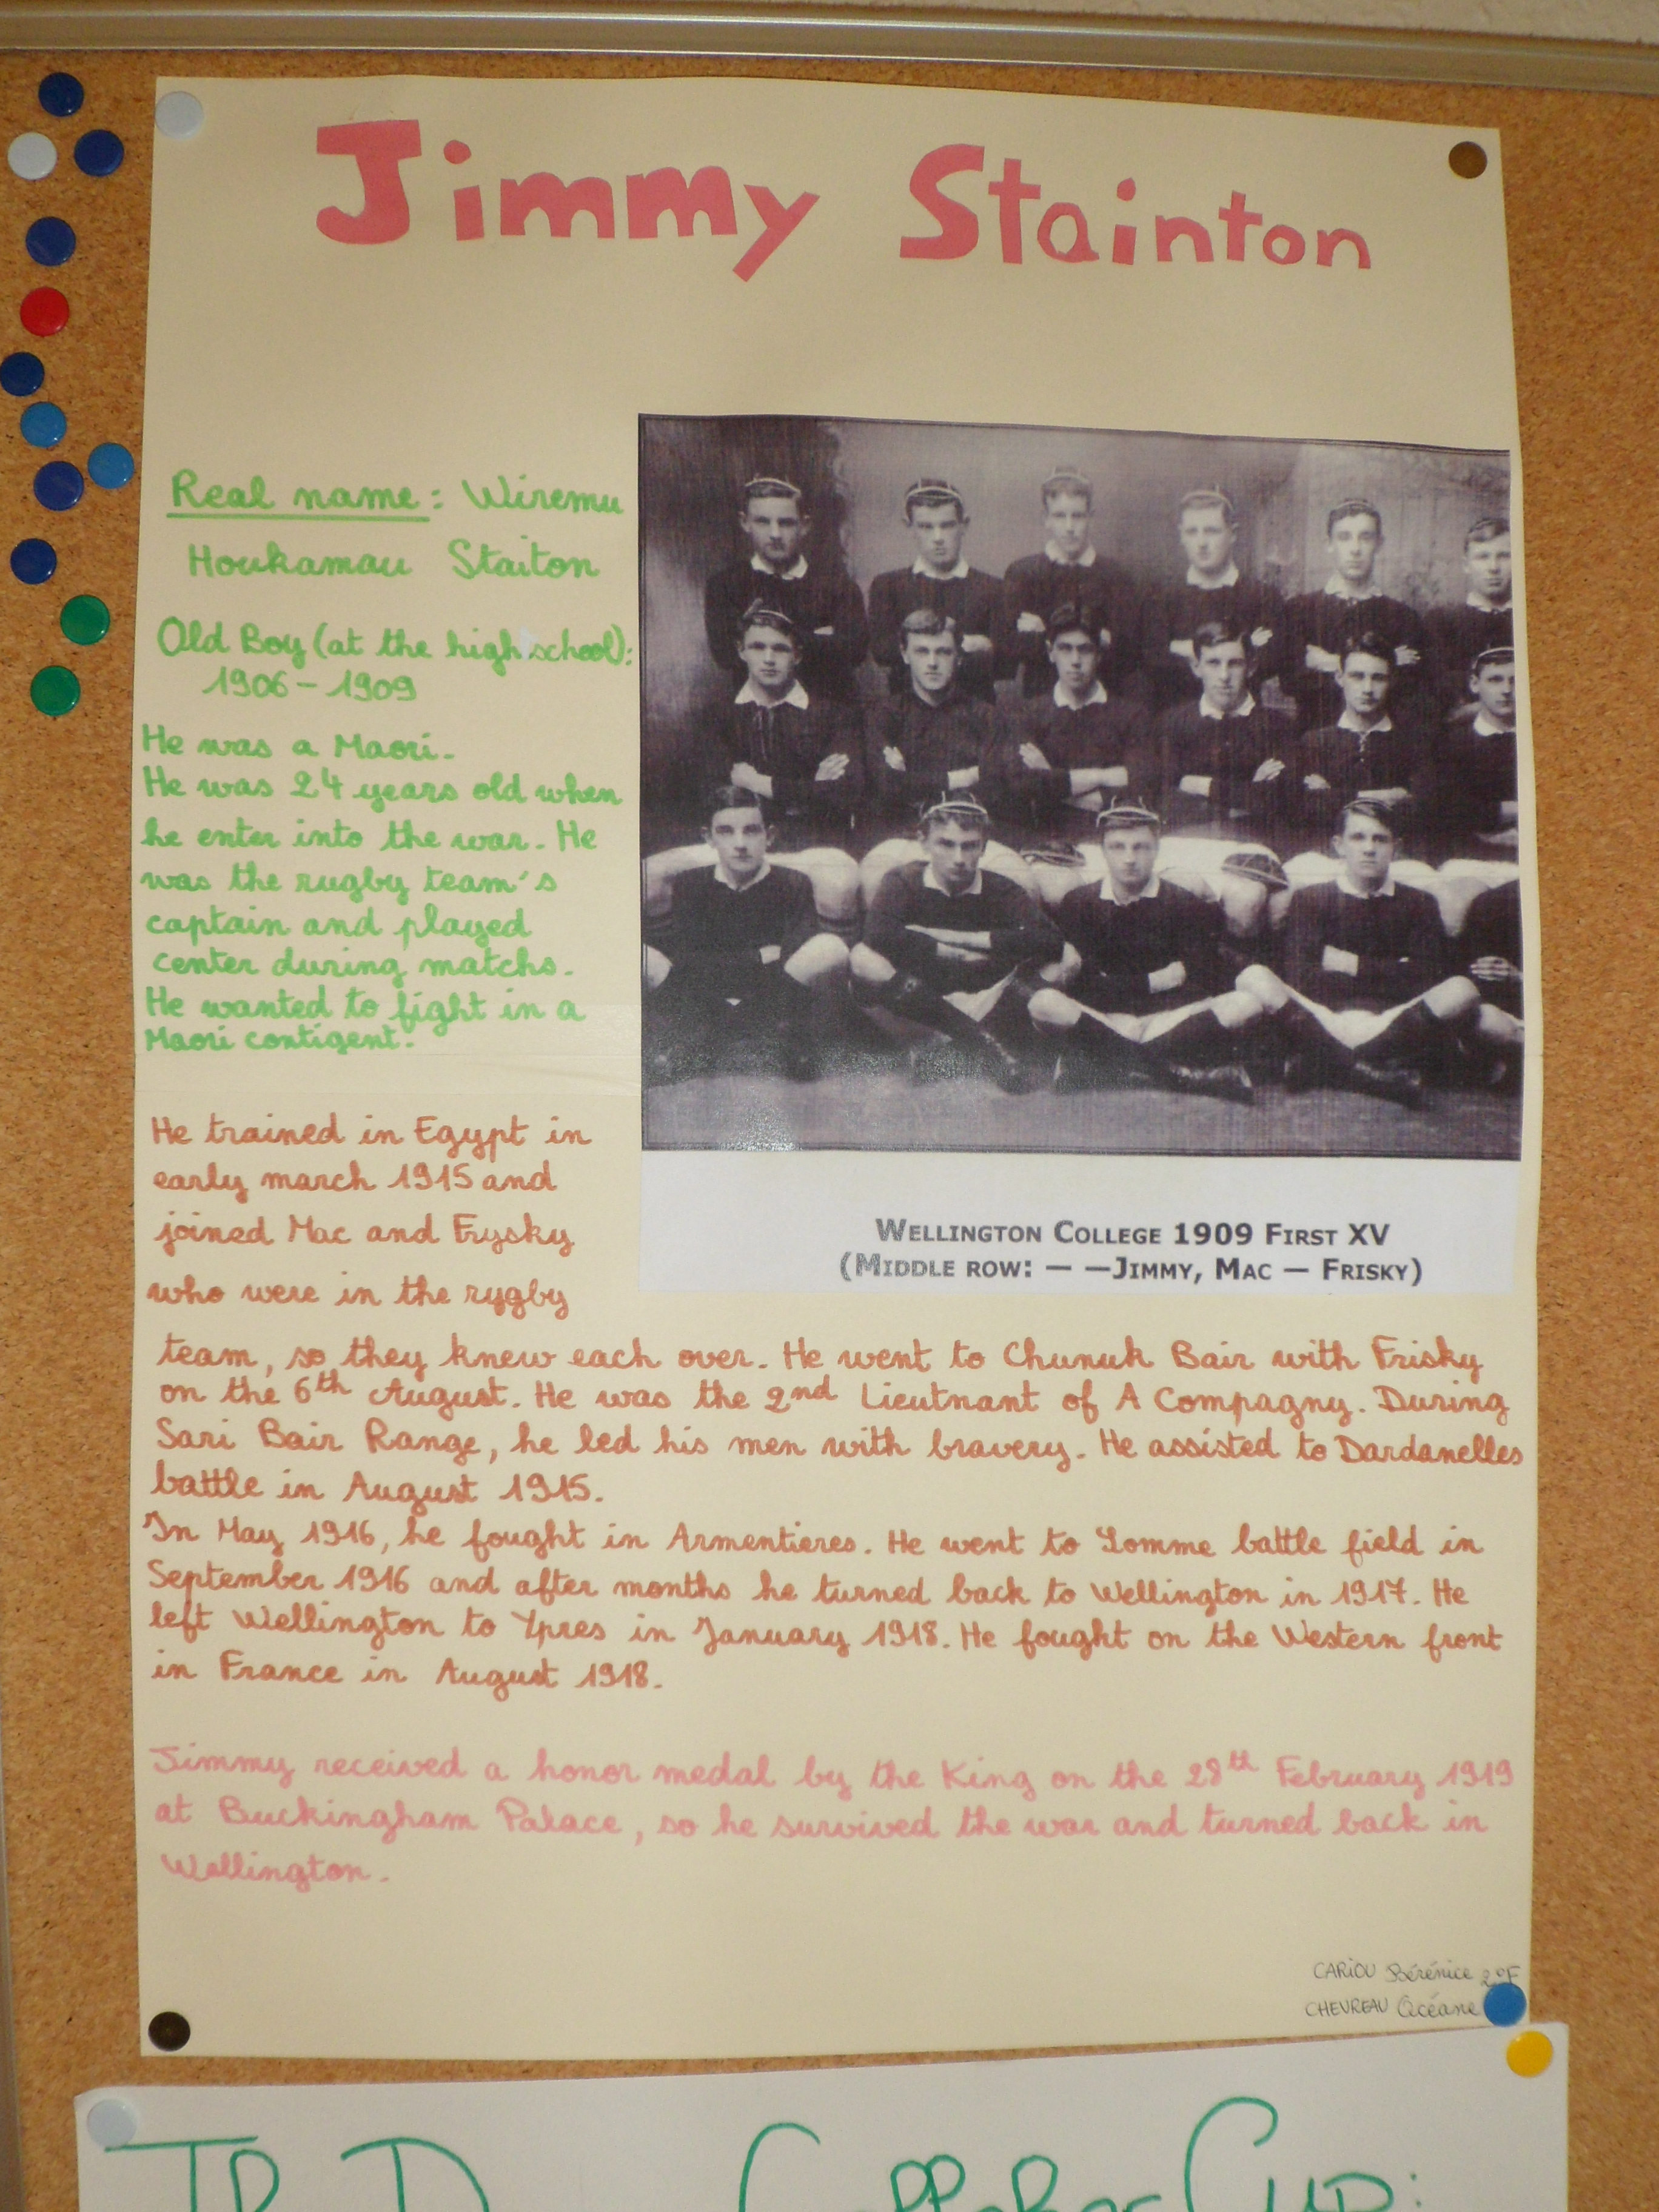 Jimmy Stainton
Real name: Wiremu
Houkamau Staiton
Old Boy (at the high school):
1906 - 1909
He was a Maori.
He was 24 years old when
he enter into the war. He
was the rugby team's
captain and played
center during matchs.
He wanted to fight in a
Maori contigent.
WELLINGTON COLLEGE 1909 FIRST XV
(MIDDLE ROW: — —JIMMY, MAC — FRISKY)
He trained in Egypt in
early march 1915 and
joined Mac and Frysky
who were in the rygby
team, so they knew each over. He went to Chunuk Bair with Frisky
on the 6th August. He was the 2nd Lieutnant of A Compagny. During
Sari Bair Range, he led his men with bravery. He assisted to Dardanelles
battle in August 1915.
In May 1916, he fought in Armentieres. He went to Somme battle field in
September 1916 and after months he turned back to Wellington in 1917. He
left Wellington to Ypres in January 1918. He fought on the Western front
in France in August 1918.
Jimmy received a honor medal by the King on the 28th February 1919
at Buckingham Palace, so he survived the war and turned back in
Wellington.
CARIOU Bérénice 2°F
CHEVREAU Océane